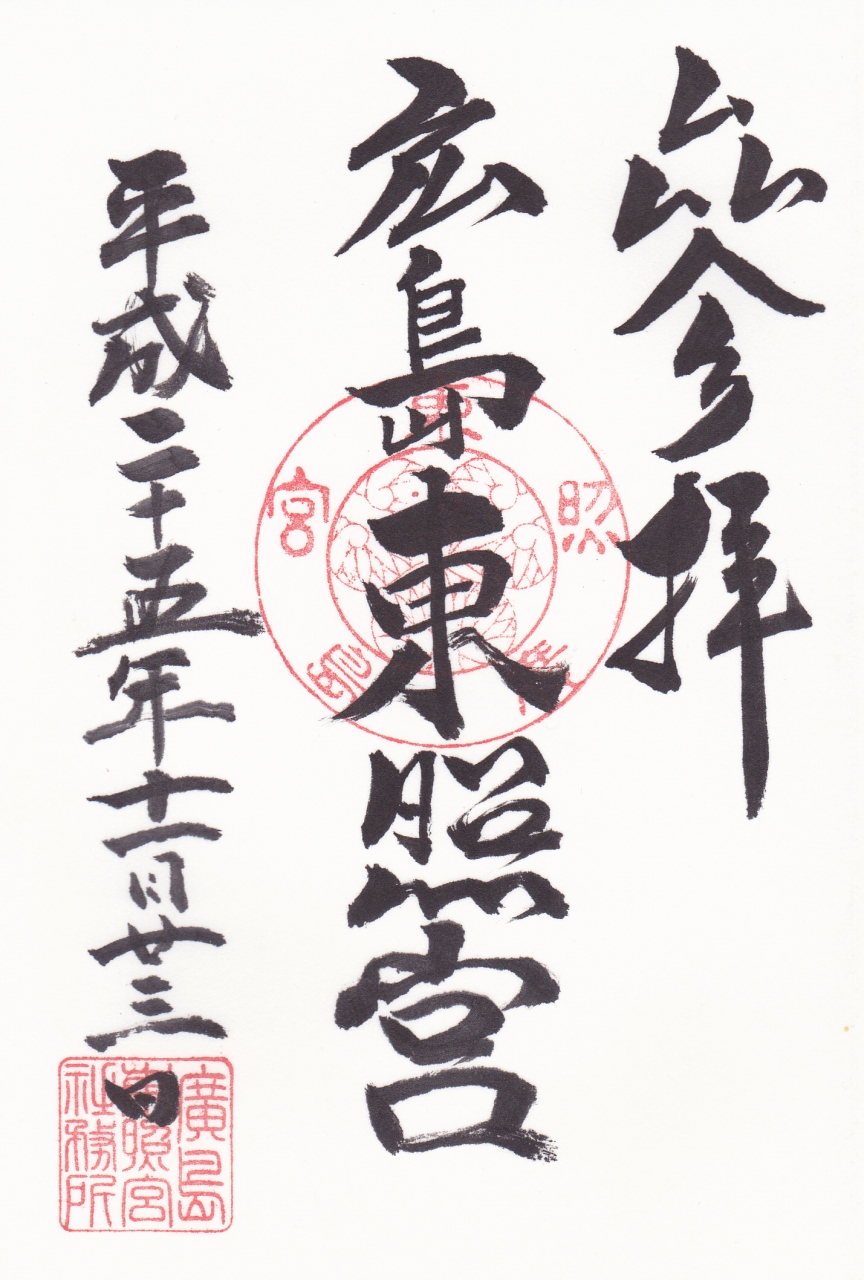 參拝
広島東照宮
平成二十五年十一月廿三日
東照宮
廣島
東照宮
社務所